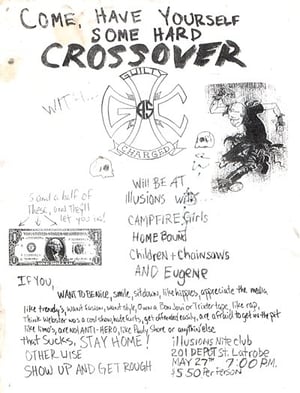 COME, HAVE YOURSELF
SOME HARD
CROSSOVER
WITH...
GUILTY
AS
CHARGED
Will BE AT
illusions with
CAMPFIRE Girls
HOME BOUND
Children + Chainsaws
AND Eugene
5 and a half of
these, and they'll
let you in!
IF YOU,
WANT TO BE NICE, smile, sit down, like hippies, appreciate the media,
like trendy's, want fusion, want style, own a Bon Jovi or Trixter tape, like rap,
think Webster was a cool show, hate farts, get offended easily, are afraid to get in the pit
like limo's, are not ANTI-HERO, like Pauly Shore or anythin' else
that sucks, STAY HOME!
OTHERWISE
SHOW UP AND GET ROUGH
illusions Nite club
201 DEPOT St. Latrobe
MAY 27th 7:00 PM.
$5.50 Per Person